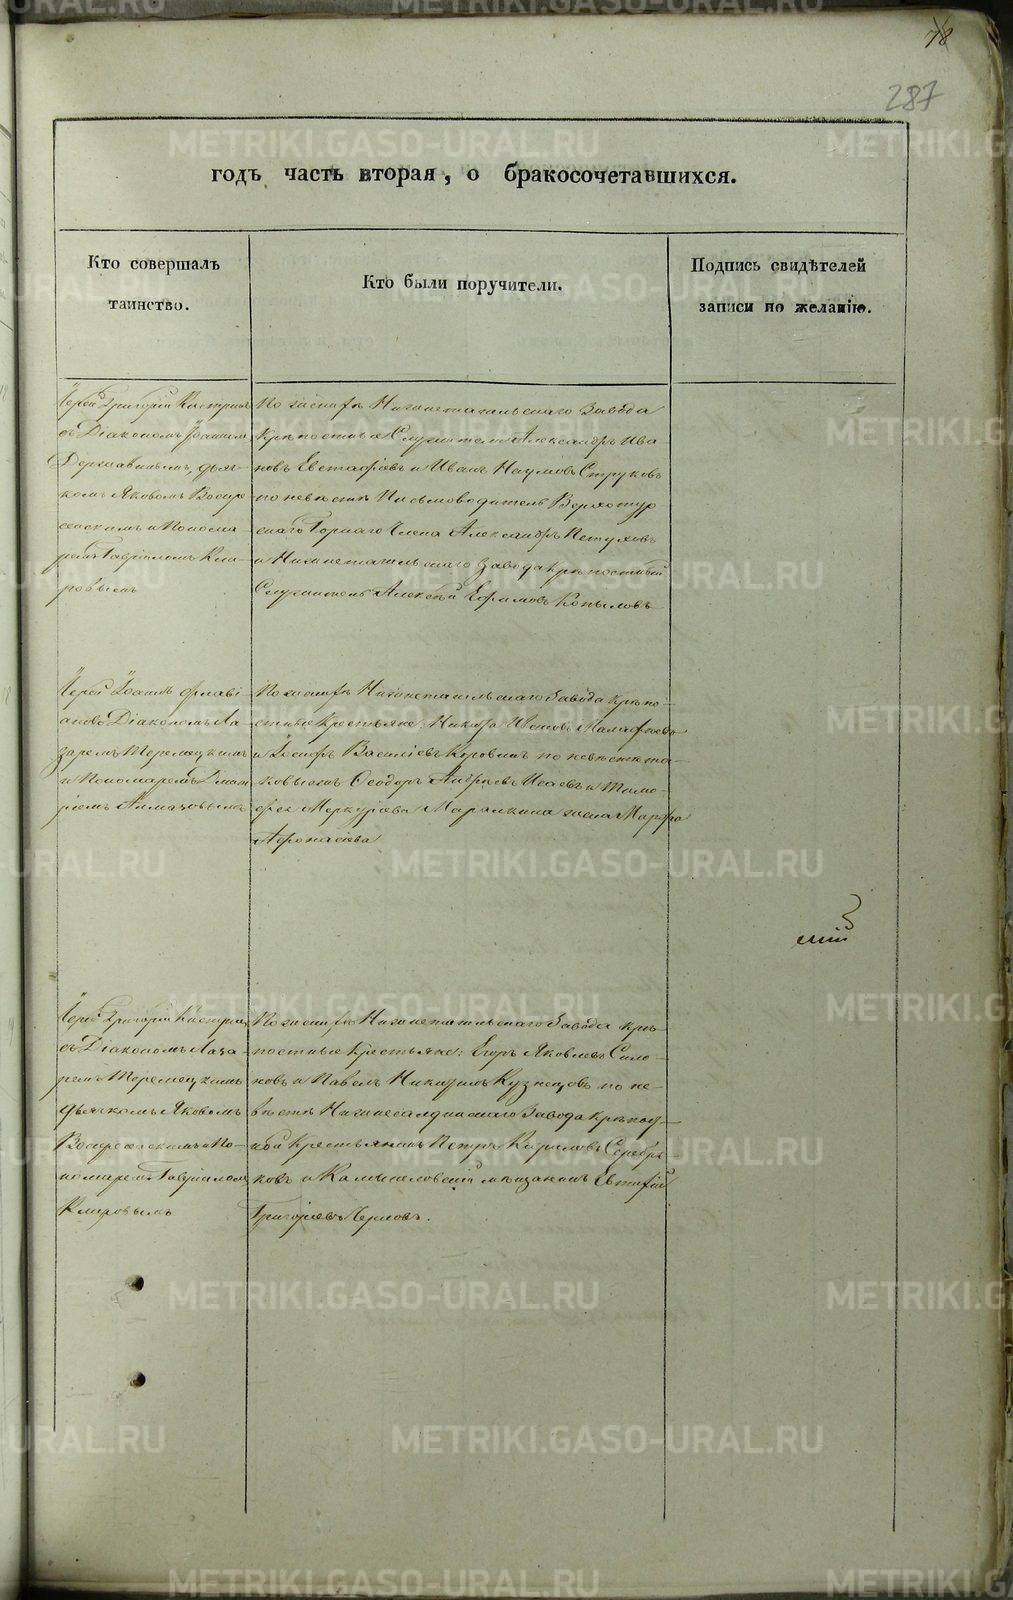 78
287
годъ часть вторая, о бракосочетавшихся.
Кто совершалъ
таинство.
Кто были поручители.
Подпись свидѣтелей
записи по желанію.
Іерей Григорій
съ Діакономъ Іоанномъ
Державинымъ, дьяч-
комъ Яковомъ Воскре-
сенскимъ и Понома-
ремъ Гавріиломъ Кли-
ровымъ
По женихѣ Нижнетагильскаго завода
крѣпостные Служители Александръ Ива-
новъ Евстафіевъ и Иванъ Наумовъ Струковъ
по невѣстѣ Письмоводитель Верхотур
скаго Горнаго Члена Александръ Петуховъ
и Нижнетагильскаго завода крѣпостной
Служитель Алексѣй Ефимовъ Копыловъ
Іерей Іоаннъ Флаві
ановъ Діакономъ Ла-
заремъ Терлецкимъ
и Пономаремъ
Алмазовымъ
По женихѣ Нижнетагильскаго Завода крѣпо-
стные крестьяне: Никита Ивановъ
и Іосифъ Василіевъ Коровинъ по невѣстѣ та-
ковые Ѳеодоръ Андреевъ Исаевъ и Тимо-
фея Меркуріева жена Марфа
Афонасіева
Іерей Григорій
съ Діакономъ Лаза-
ремъ Терлецкимъ
дьячкомъ Яковомъ
Воскресенскимъ и По-
номаремъ Гавріиломъ
Клировымъ
По женихѣ Нижнетагильскаго Завода крѣ-
постные крестьяне: Егоръ Яковлевъ
и Павелъ Никитинъ Кузнецовъ по не-
вѣстѣ Нижнесалдинскаго Завода крѣпост-
ной крестьянинъ Петръ Кириловъ Серебря-
ковъ и Камышловскій мѣщанинъ Евтифій
Григоріевъ Черновъ.